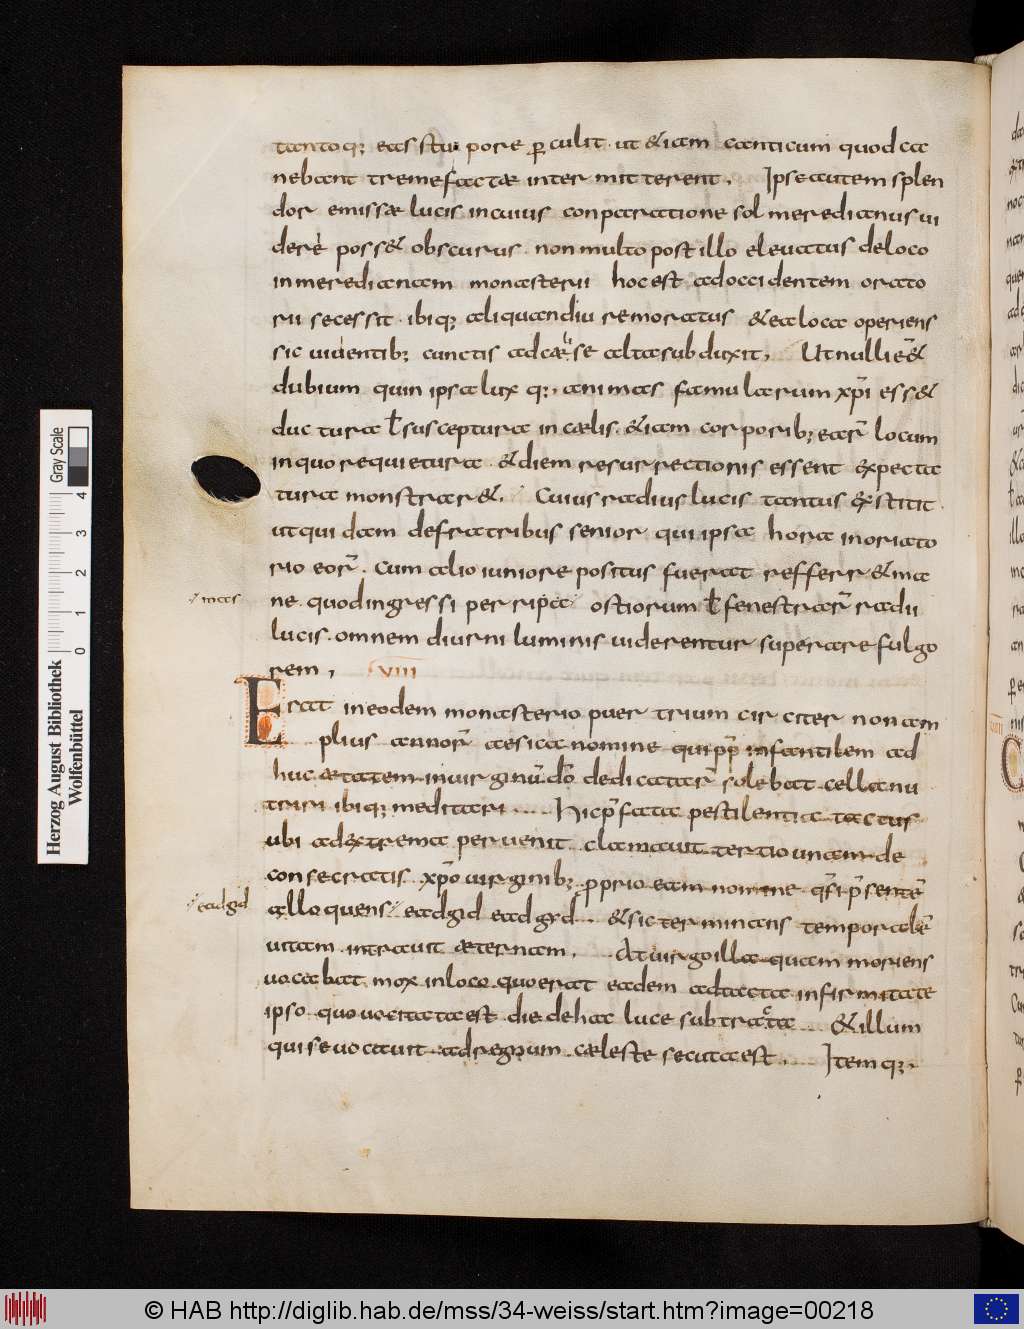 tantoq; eas stupore ꝑculit · ut &iam canticum quod ca
nebant tremefactæ intermitterent . Ipse autem splen
dor emissæ lucis incuius conparatione sol meredianus ui
dere poss& obscurus . non multo post illo eleuatus deloco
inmeredianam monasterii hoc est adoccidentem orato
rii secessit · ibiq; aliquandiu remoratus & ea loca operiens
sic uidentib; cunctis adcæ se alta subduxit , Ut nulli e&
dubium quin ipsa lux q;, animas famularum xp̄i ess&
ductura ł susceptura in cælis . &iam corporib; ear̄ locum
inquo requietura · &diem resurrectionis essent expecta
tura monstrar& . Cuius radius lucis tantus exstitit .
ut quidam defratribus senior qui ipsa hora inorato
rio eor̄ . Cum alio iuniore positus fuerat refferr& ma
// mas
ne quodingressi per ripa// ostiorum ł fenestrar̄ radii
lucis . omnem diurni luminis uiderentur superare fulgo
rem , VIII
Erat ineodem monasterio puer trium circiter non am
plius annor̄ æsica nomine qui pp̄ infantilem ad
huc ætatem inuirginū dō dedicatar̄ solebat cella nu
triri ibiq; meditari Hic p̄fata pestilentia tactus
ubi adextrema peruenit clamauit tertio unam de
consecratis xp̄o uirginib; ꝓprio eam nomine q̄si p̄sentē
// eadgid
alloquens // eadgid eadgid . & sic terminans temporalē
uitam intrauit æternam , At uirgo illa quam moriens
uocabat mox inloco quo erat eadem adtacta infirmitate
ipso quo uocitata est die dehac luce subtracta & illum
qui se uocauit adregnum cæleste secuta est , Item q;,
Herzog August Bibliothek
Wolfenbüttel
0 1 2 3 4
Gray Scale
© HAB http://diglib.hab.de/mss/34-weiss/start.htm?image=00218